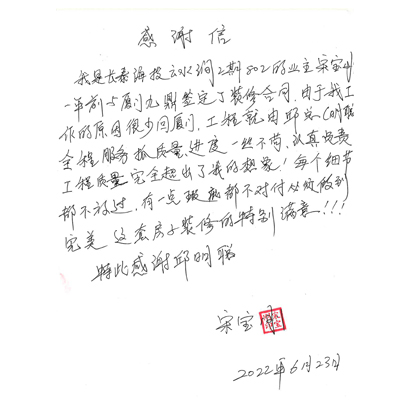 感谢信
我是长泰海投云水涧2期802的业主宋宝
一年前与厦门九鼎签定了装修合同,由于我工
作的原因很少回厦门,工程就由邱总(明聪)
全程服务抓质量,进度一丝不苟,认真负责
工程质量完全超出了我的想象!每个细节
都不放过,有一点瑕疵都不对付必须做到
完美 这套房子装修的特别满意!!!
特此感谢邱明聪
宋宝
2022年6月23日